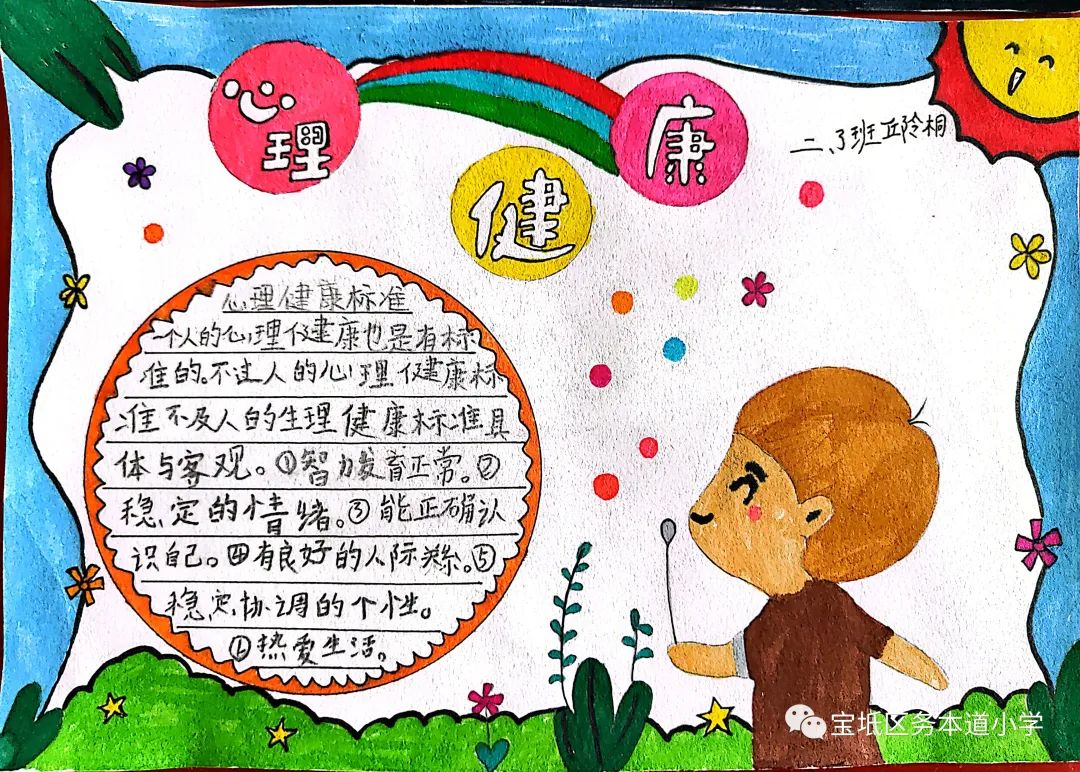 心理健康
二、3班 丘陵桐
心理健康标准
一个人的心理健康也是有标
准的。不过人的心理健康标
准不及人的生理健康标准具
体与客观。①智力发育正常。②
稳定的情绪。③能正确认
识自己。四有良好的人际关系。⑤
稳定协调的个性。
⑥热爱生活。
宝坻区务本道小学